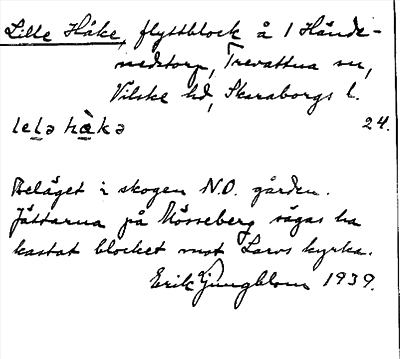 Lille Håke, flyttblock å 1 Hände-
nedstorp, Trevattna sn,
Vilske hd, Skaraborgs l.
lelə hàkə 24.
Beläget i skogen N.O. gården.
Jättarna på Mösseberg sägas ha
kastat blocket mot Larvs kyrka.
Erik Ljungblom 1939.